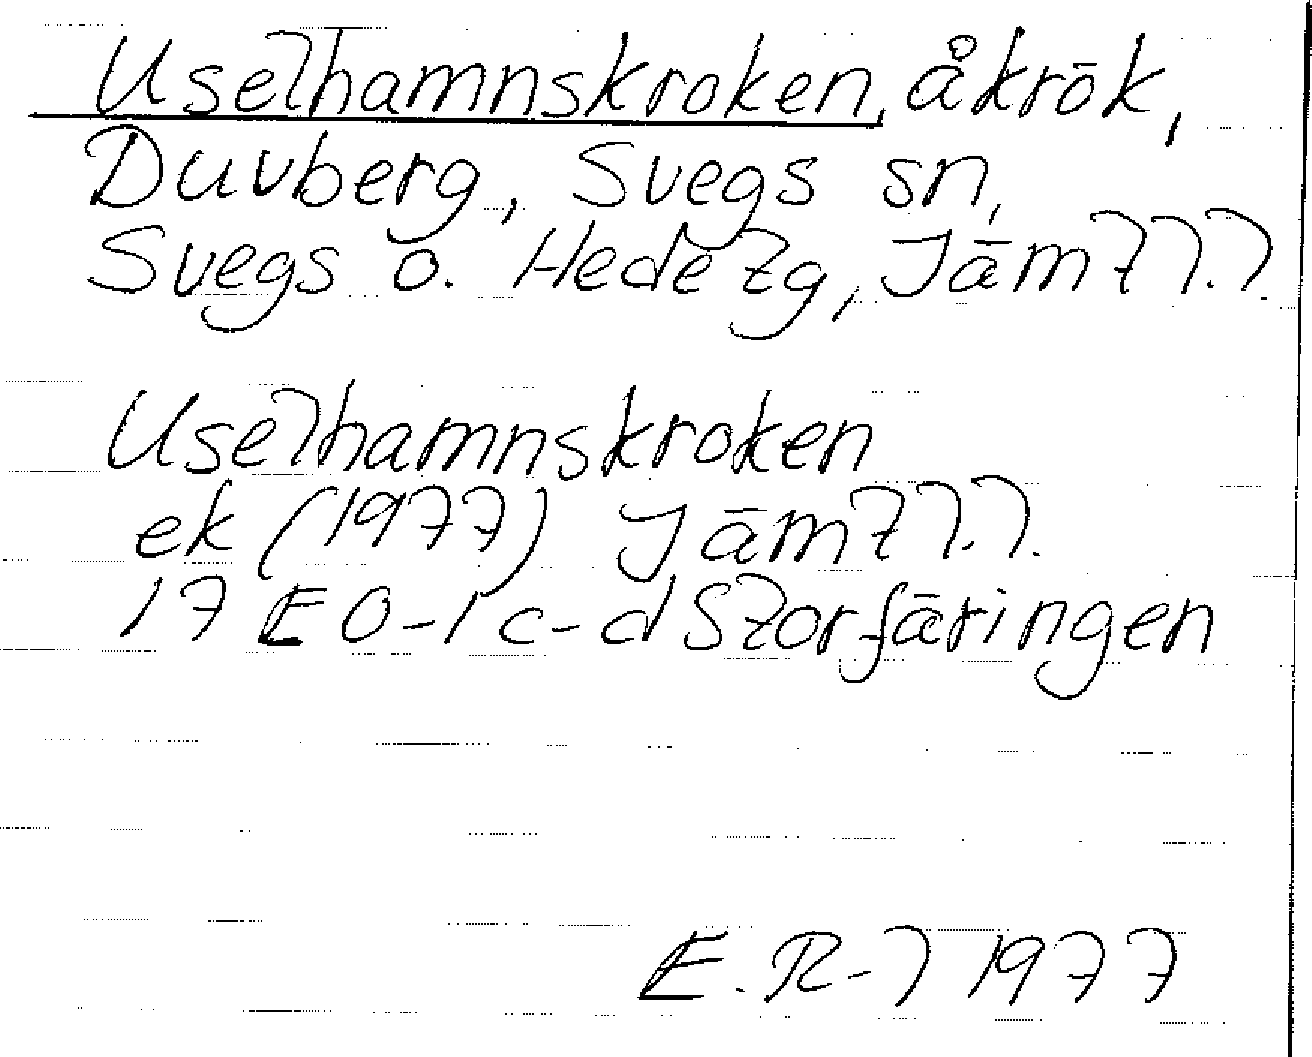 Uselhamnskroken, åkrök,
Duvberg, Svegs sn,
Svegs o. Hede tg, Jämtl.l.
Uselhamnskroken
ek (1977) Jämtl.l.
17 E 0-1 c-d Storfäringen
E. R-l 1977